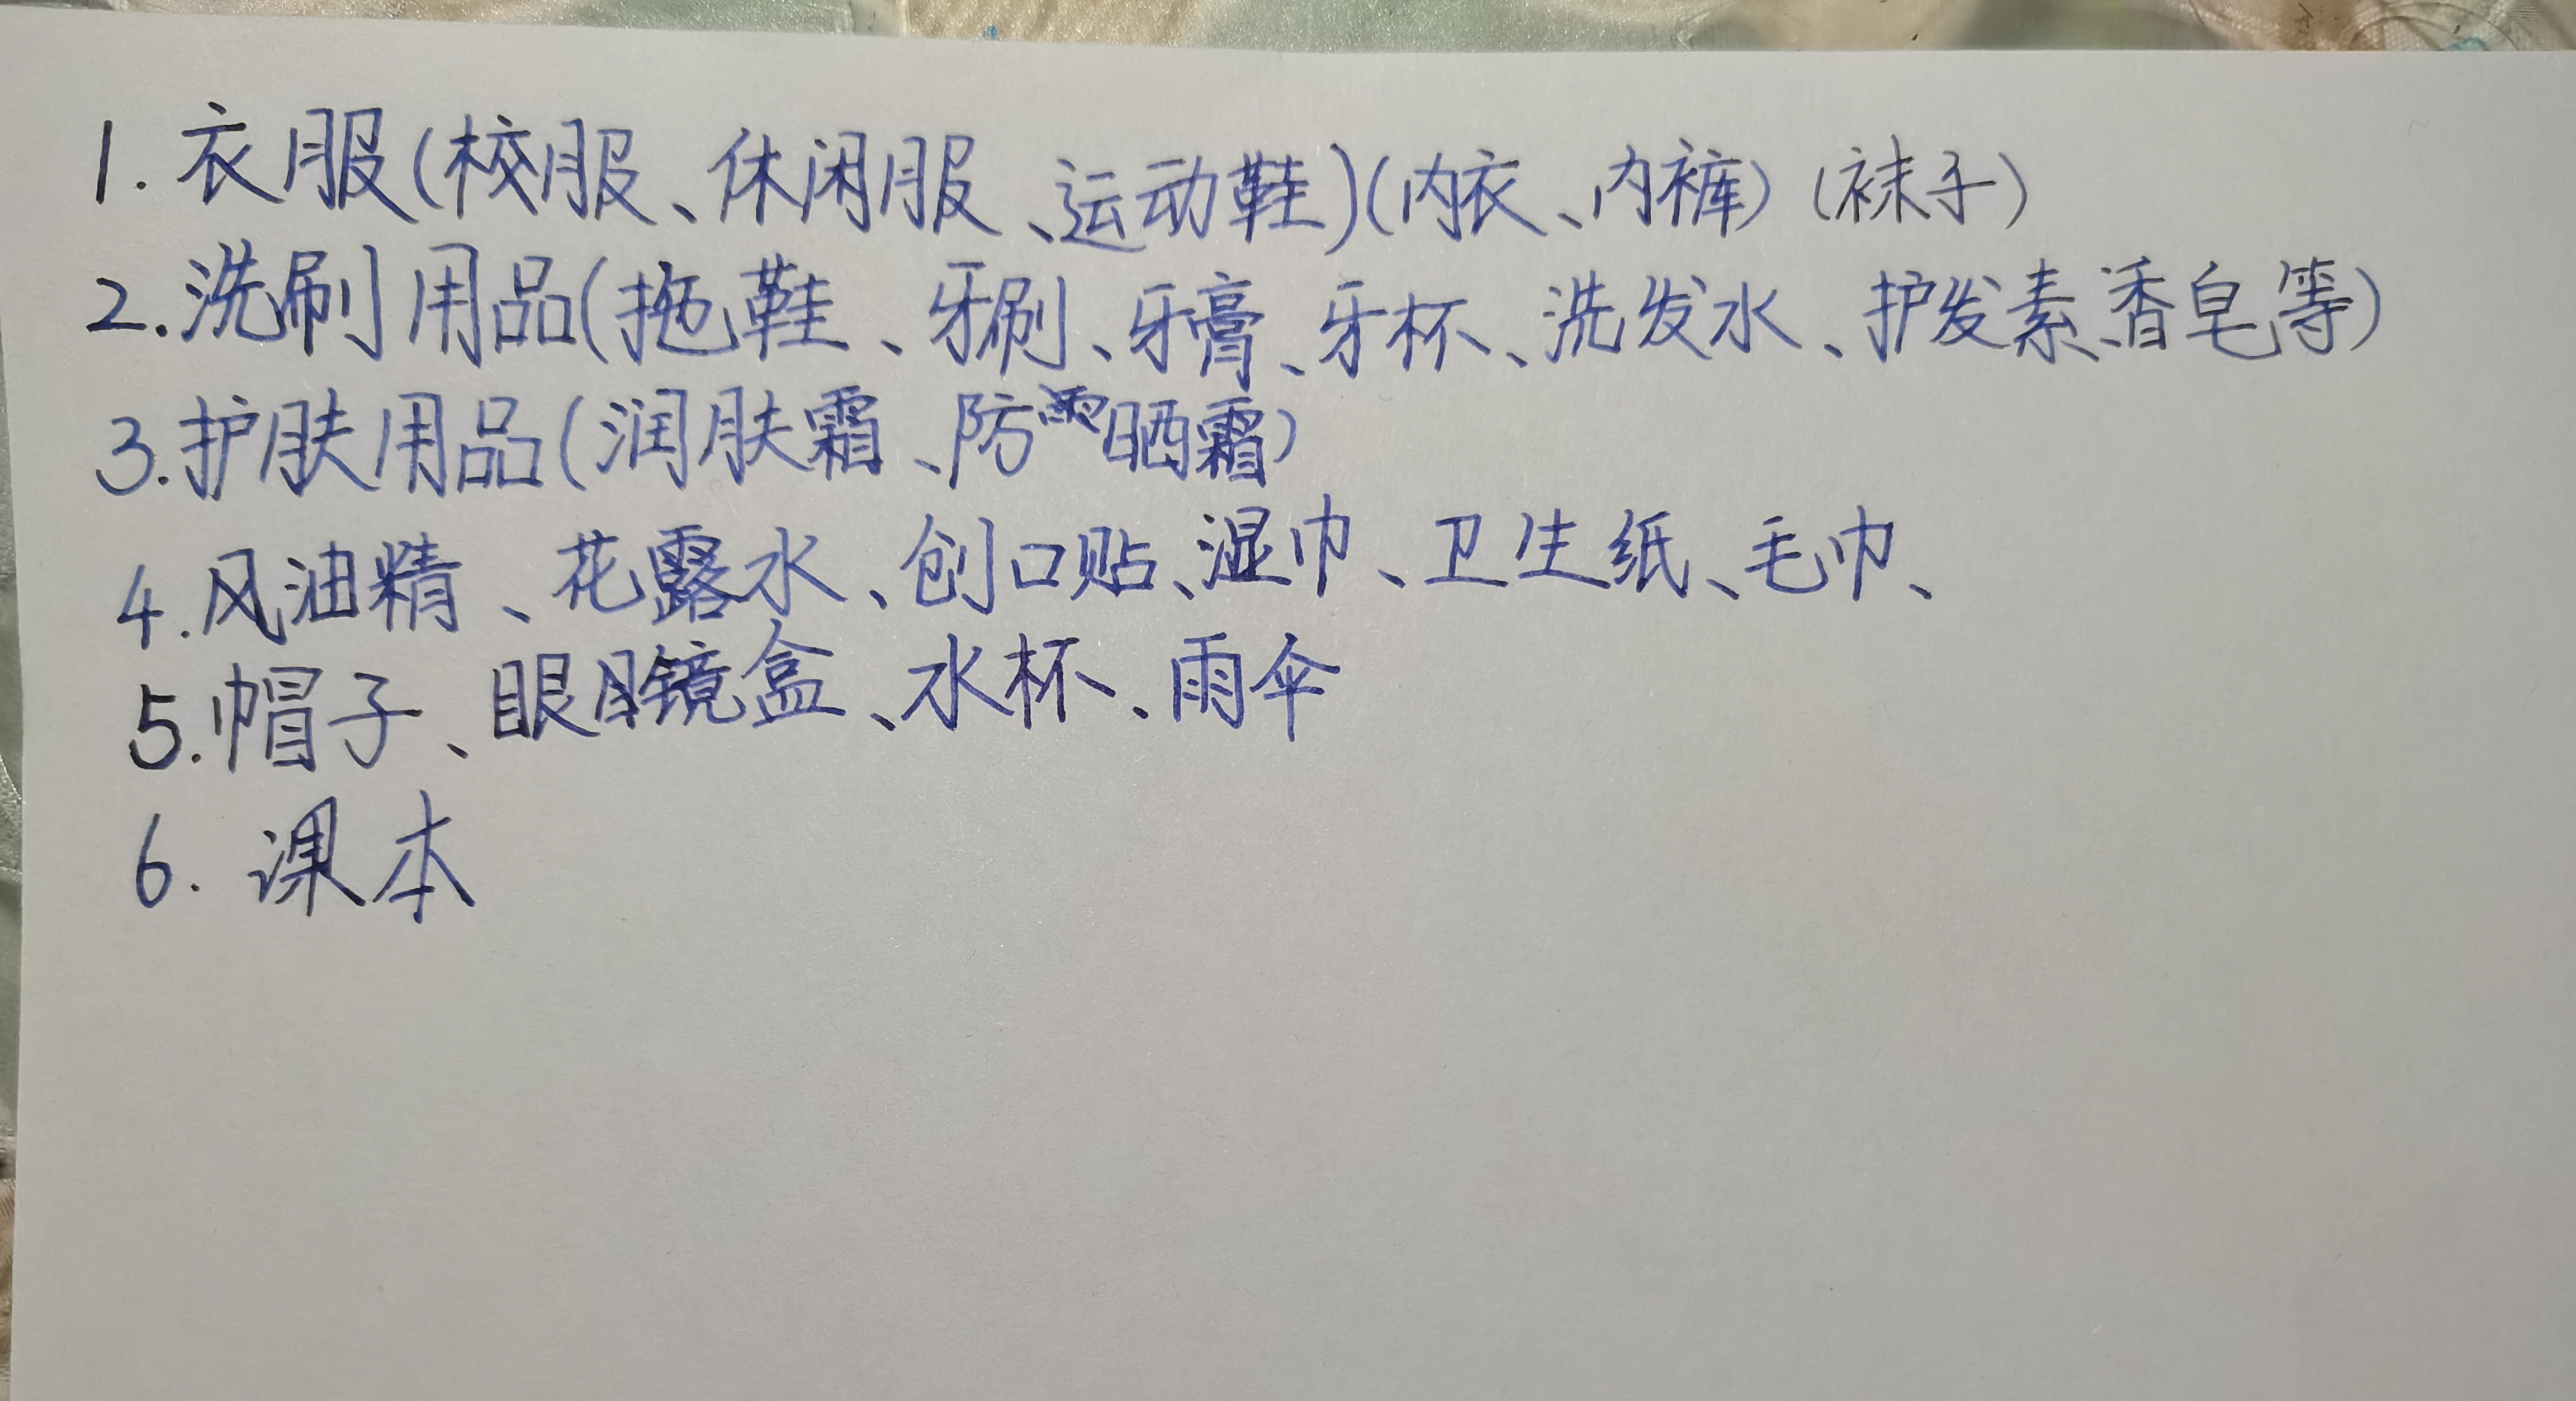 1. 衣服(校服、休闲服、运动鞋)(内衣、内裤)(袜子)
2. 洗刷用品(拖鞋、牙刷、牙膏、牙杯、洗发水、护发素、香皂等)
3. 护肤用品(润肤霜、防晒霜)
4. 风油精、花露水、创口贴、湿巾、卫生纸、毛巾、
5. 帽子、眼镜盒、水杯、雨伞
6. 课本